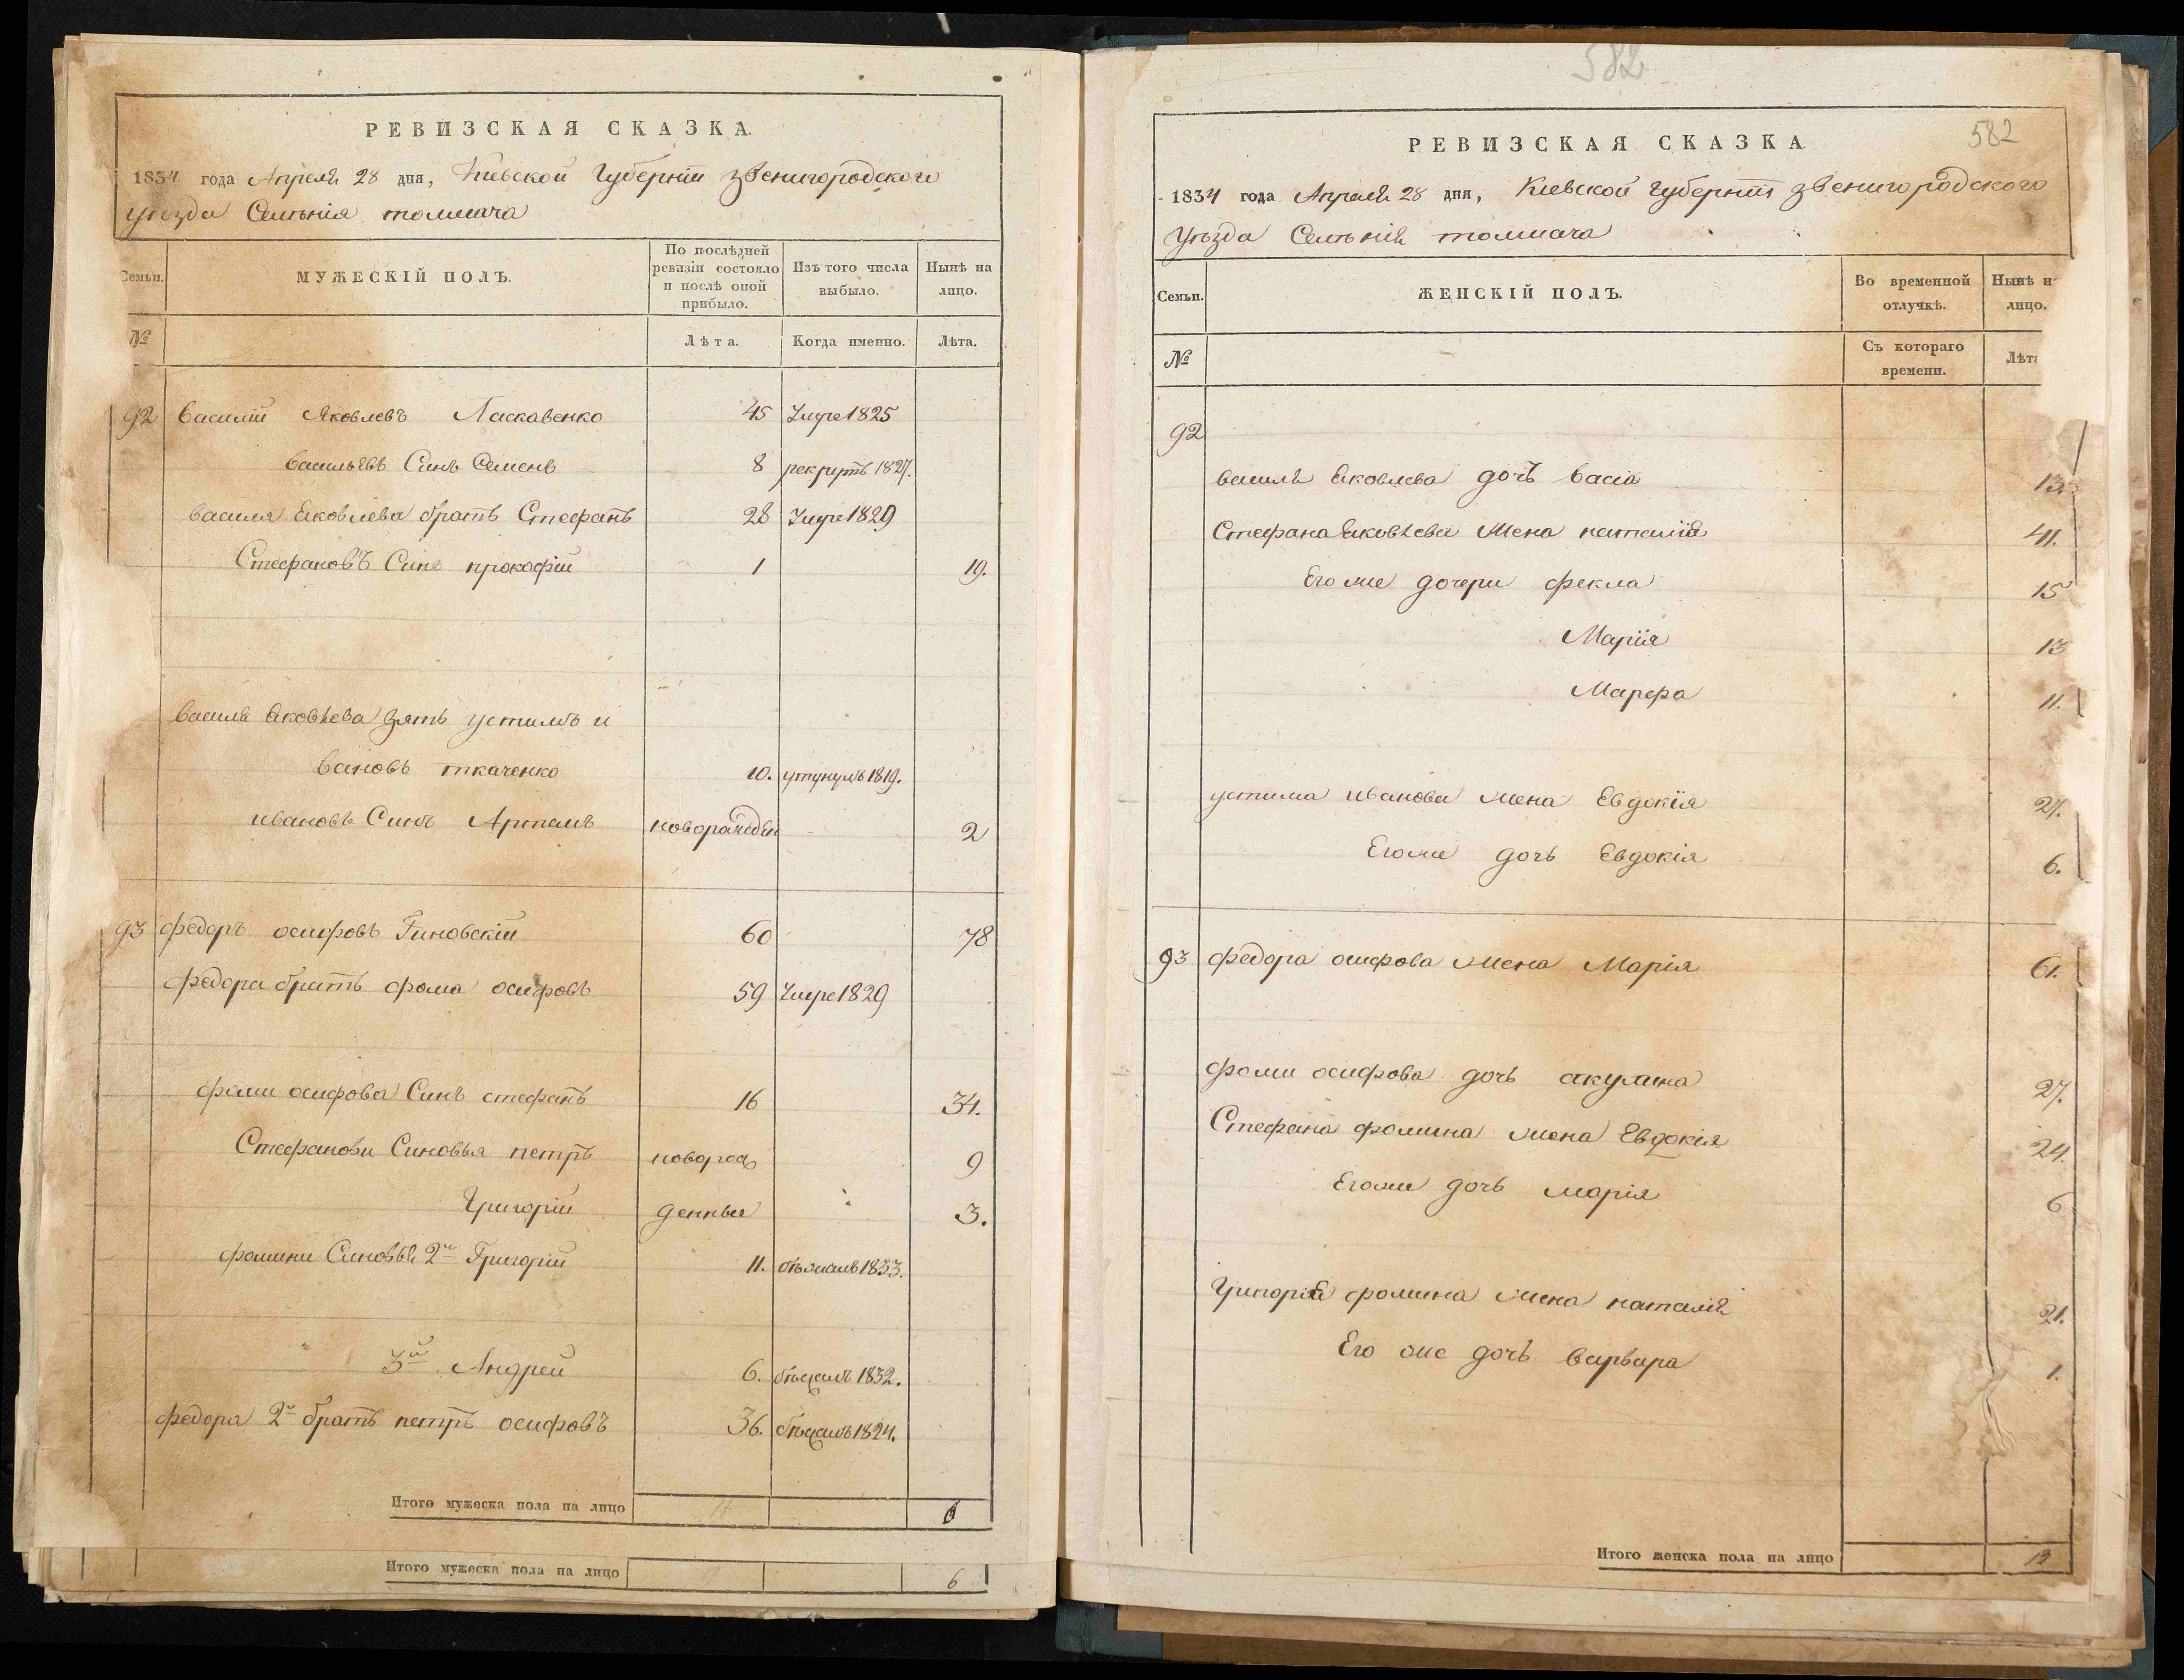 РЕВИЗСКАЯ СКАЗКА.
1834 года Апреля 28 дня, Киевской Губернии звенигородского
уѣзда Селѣнія толмача
Семьи.
МУЖЕСКІЙ ПОЛЪ.
По послѣдней ревизіи состояло и послѣ оной прибыло.
Изъ того числа выбыло.
Нынѣ на лицо.
№
Лѣта.
Когда именно.
Лѣта.
92 Василій Яковлевъ Ласкавенко 45 Умре 1825
васильевъ Синъ Семенъ 8 рекрутъ 1827.
василя Яковлева братъ Стефанъ 28 Умре 1829
Стефановъ Синъ прокофій 1 19.
василя Яковлева зять устимъ и
вановъ ткаченко 10. утунулъ 1819.
ивановъ Синъ Артамъ новорожден 2
93 федоръ осифовъ Гиновскій 60 78
федора братъ фома осифовъ 59 Умре 1829
фоми осифова Синъ стефанъ 16 34.
Стефанови Синовья петръ новорож 9
Григорій денные 3.
фомини Синовья 2й Григорій 11. бѣжалъ 1833.
3й Андрей 6. бѣжалъ 1832.
федора 2й братъ петръ осифовъ 36. бѣжалъ 1824.
Итого мужеска пола на лицо 6
Итого мужеска пола на лицо 6
582
582
РЕВИЗСКАЯ СКАЗКА.
1834 года Апреля 28 дня, Киевской Губерніи звенигородского
Уѣзда Селѣнія толмача
Семьи.
ЖЕНСКІЙ ПОЛЪ.
Во временной отлучкѣ.
Нынѣ на лицо.
№
Съ котораго времени.
Лѣта
92
василя Яковлева дочъ васіа 13.
Стефана Яковлева жена наталія 41.
Его же дочери фекла 15
Марїя 13
Марфа 11.
устима иванова жена Евдокїя 27.
Егоже дочь Евдокія 6.
93 федора осифова жена Марія 61.
фоми осифова дочь акулина 27.
Стефана фомина жена Евдокія 24.
Егоже дочь марія 6
Григорія фомина жена наталія 21.
Его же дочь варвара 1.
Итого женска пола на лицо 13